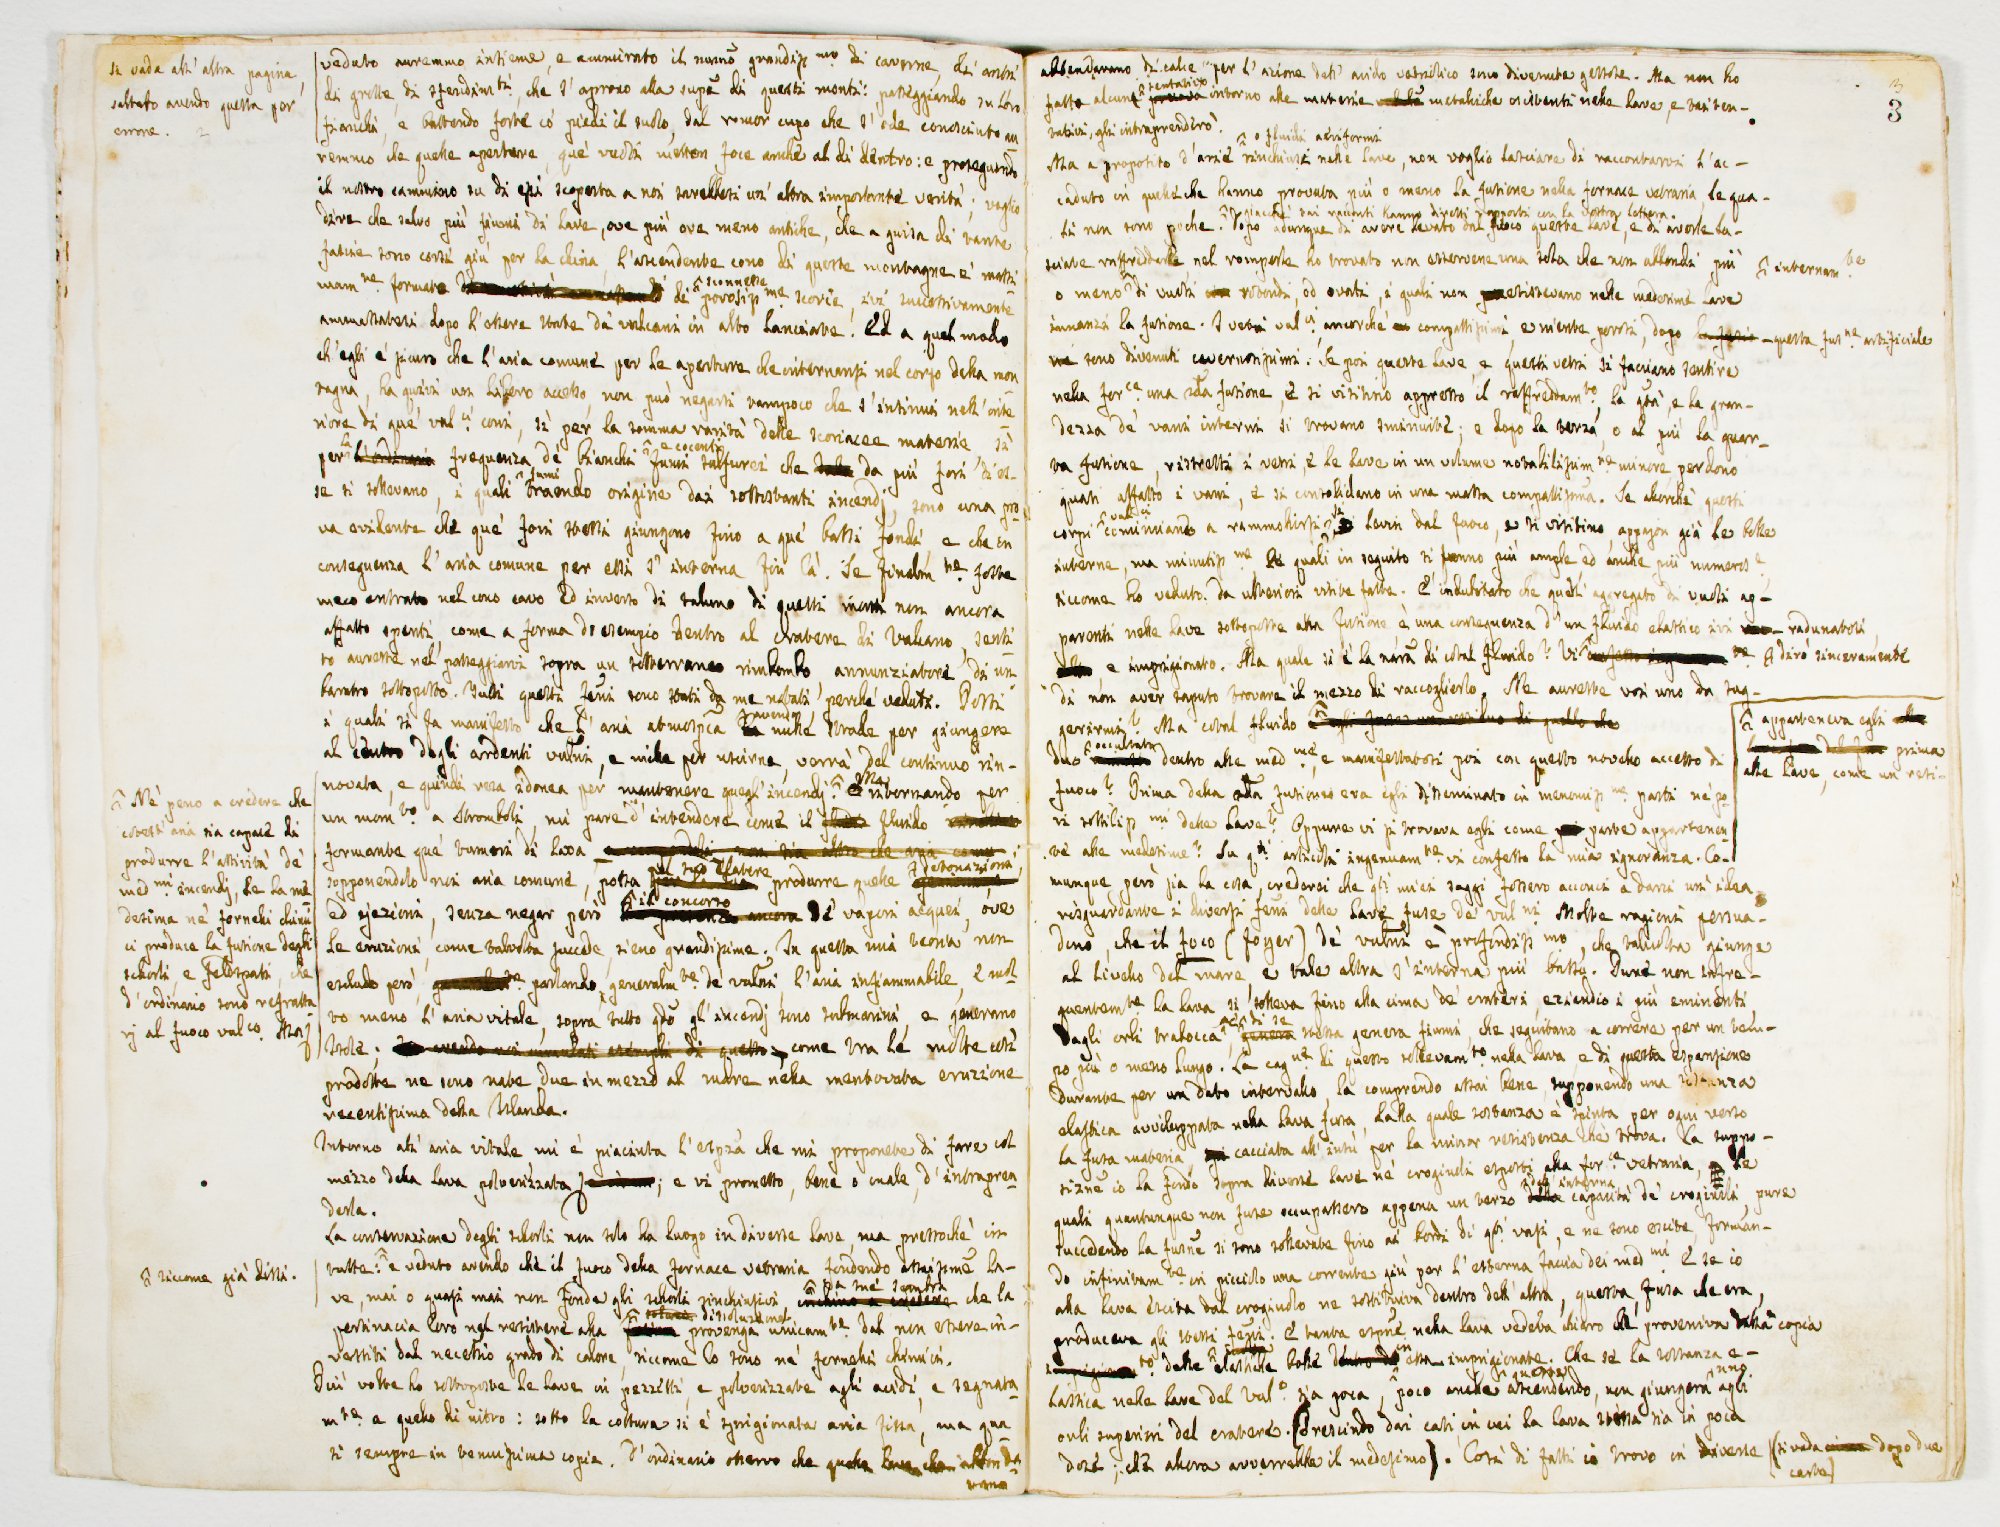 si vada all' altra pagina,
saltato avendo questa per
errore. 2
veduto avremmo insieme, e ammirato il num.o grandiss.mo di caverne, di antri
di grotte, di sfendim.ti, che s' aprono alla sup.e di questi monti: passeggiando su loro
fianchi, e battendo forte co' piedi il suolo, dal romor cupo che s' ode conosciuto au
remmo che quelle aperture, que' vuoti metton foce anche al di dentro: e proseguendo
il nostro cammino su di essi scoperta a noi sarebbesi un' altra importante verità; voglio
dire che salvo più fiumi di lave, ove più ove meno antiche, che a guisa di tante
fascie sono corsi giù per la china, l' ascendente cono di queste montagne è massi
mam.te formato di sconnesse porosiss.me scorie, ivi successivamente
ammassatesi dopo l' essere state da' vulcani in alto lanciate. Ed a quel modo
ch' egli è sicuro che l' aria comune per le aperture che internansi nel corpo della mon
tagna, ha quivi un libero accesso, non può negarsi tampoco che s' insinui nell' inte
riore di que' val.ci coni, sì per la somma rarità delle scoriacee materie, sì
per la frequenza de' bianchi e cocenti fumi sulfurei che da più fori di es-
se si sollevano, i quali fumi traendo origine dai sottostanti incendj, sono una pro
va evidente che que' fori stessi giungono fino a que' bassi fondi, e che in
conseguenza l' aria comune per essi s' interna fin là. Se finalm.te foste
meco entrato nel cono cavo ed inverso di taluno di questi monti non ancora
affatto spenti, come a forma di esempio dentro al cratere di Vulcano, senti
to avreste nel passeggiarvi sopra un sotterraneo rimbombo annunziatore di un
baratro sottoposto. Tutti questi fen.i sono stati da me notati perché veduti. Posti
i quali si fa manifesto che l' aria atmosf.ca avendo mille strade per giungere
al centro degli ardenti vulc.i, e mille per uscirne, verrà del continuo rin-
novata, e quindi resa idonea per mantenere quegl' incendj. Ma ritornando per
un mom.to a Stromboli, mi pare d' intendere come il fluido
formante que' tumori di lava
supponendolo noi aria comune, possa produrre quelle detonazioni,
ed ejezioni, senza negar però il concorso de' vapori acquei, ove
le eruzioni, come talvolta succede, sieno grandissime. In questa mia teoria non
escludo però, parlando generalm.te de' vulc.i, l' aria infiammabile, e mol
to meno l' aria vitale, sopra tutto q.do gl' incendj sono sotmarini, e generano
Isole; come tra le molte così
prodotte ne sono nate due in mezzo al mare nella mentovata eruzione
recentissima della Islanda.
Intorno all' aria vitale mi è piaciuta l' esp.za che mi proponete di fare col
mezzo della lava polverizzata; e vi prometto, bene o male, d' intrapren
derla.
La conservazione degli schorli non solo ha luogo in diverse lave, ma pressochè in
tutte: e veduto avendo che il fuoco della fornace vetraria fondendo assaissime la-
ve, mai o quasi mai non fonde gli schorli rinchiusivi da me sembra che la
pertinacia loro nel resistere alla dissoluzione provenga unicam.te dal non essere in-
vestiti dal necessario grado di calore, siccome lo sono ne' fornelli chimici.
Più volte ho sottoposte le lave in pezzetti, e polverizzate agli acidi, e segnata
m.te e quello di nitro: sotto la coltura si è sprigionata aria fissa, ma qua
si sempre in tenuissima copia. D' ordinario osservo che quelle lave che abbon da
rono
Nè peno a credere che
cotest' aria sia capace di
produrre l' attività de'
med.mi incendj, se la me
desima ne' fornelli chimi
ci produce la fusione degli
schorli, e feldspati, che
d' ordinario sono refratta
rj al fuoco val.co. Ma
siccome già dissi.
3
abbondarono di calce per l' azione dell' acido vetriolico sono divenute gessose. Ma non ho
fatto alcun tentativo intorno alle materie metalliche esistenti nelle lave, e tai ten-
tativi, gli intraprenderò.
Ma a proposito d' arie o fluidi aeriformi rinchiusi nelle lave, non voglio lasciare di raccontarvi l' ac-
caduto in quelle che hanno provata più o meno la fusione nella fornace vetraria, le qua-
li non sono poche. giacchè tai racconti hanno diretti rapporti con la vostra lettera. Dopo adunque di avere levato dal fuoco queste lave, e di averle la-
sciate raffreddarle, nel romperle ho trovato non esservene una sola che non abbondi più
internam.te
o meno di vuoti rotondi, od ovali, i quali non esistevano nelle medesime lave
innanzi la fusione. I vetri val.ci, ancorchè compattissimi, e niente porosi, dopo questa fus.ne artificiale
sono divenuti cavernosissimi. Se poi queste lave e questi vetri si facciano sentire
nella for.ce una 2da fusione, e si visitino appresso il raffreddam.to, la q.tà, e la gran-
dezza de' vani interni si trovano sminuite; e dopo la terza, o al più la quar-
ta fusione, ristretti i vetri e le lave in un volume notabilissim.te minore perdono
quasi affatto i vani, e si consolidano in una massa compattissima. Se allorchè questi
corpi val.ci cominciano a rammollirsi si levin dal fuoco, e si visitino appajon già le bolle
interne, ma minutiss.me, le quali in seguito si fanno più ample ed anche più numerose,
siccome ho veduto da ulteriori visite fatte. È indubitato che quest' aggregato di vuoti ap-
parenti nelle lave sottoposte alla fusione è una conseguenza d' un fluido elastico ivi radunatosi,
e imprigionato. Ma quale si è la natura di cotal fluido? Vi dirò sinceramente
di non aver saputo trovare il mezzo di raccoglierlo. Ne avreste voi uno da sug-
gerirmi? Ma cotal fluido
apparteneva egli prima
alle lave, come un resi-
duo occultato dentro alle med.me, e manifestatosi poi con questo novello accesso di
fuoco? Prima della 2da fusione era egli disseminato in menomiss.me parti ne' po-
ri sottiliss.mi delle lave? Oppure vi si trovava egli come parte appartenen
te alle medesime? Su q.ti articoli ingenuam.te vi confesso la mia ignoranza. Co-
munque però sia la cosa, crederei che q.ti miei saggi fossero acconci a darci un' idea
risguardante i diversi fen.i delle lave fuse de' vul.ni. Molte ragioni persua-
dono, che il foco (foyer) de' vulc.i è profondiss.mo, che talvolta giunge
al livello del mare, e tale altra s' interna più basso. Dunè non infre-
quentem.te la lava si solleva fino alla cima de' crateri, eziandio i più eminenti
dagli orli trabocca, ed ivi se stessa genera fiumi, che seguitano a correre per un tem-
po più o meno lungo. La cag.ne di questo sollevam.to nella lava, e di questa espansione
durante per un dato intervallo, la comprendo assai bene, supponendo una sostanza
elastica avviluppata nella lava fusa, dalla quale sostanza è spinta per ogni verso
la fusa materia cacciata all' insù per la minor resistenza che trova. La suppo-
siz.ne io la fondo sopra diverse lave ne' crogiuoli esposti alla for.ce vetraria, le
quali quantunque non fuse occupassero appena un terzo dell' interna capacità de' crogiuoli, pure
succedendo la fus.ne si sono sollevate fino ai bordi di q.ti vasi, e ne sono escite, forman-
do infinitam.te in picciolo una corrente giù per l' esterna faccia dei med.mi. E se io
alla lava escita dal crogiuolo ne sostituiva dentro dell' altra, questa, fusa che era,
produceva gli stessi fen.i. E tanta esp.ne nella lava vedeva chiaro che proveniva dalla copia
delle elastiche bolle in essa imprigionate. Che se la sostanza e-
lastica nelle lave del Vul.o sia poca, poco anche ascendendo, non giungerà agli
orli superiori del cratere. (Prescindo dai casi in cui la lava stessa sia in poca
dose; che allora avverrebbe il medesimo). Così di fatti io trovo in diverse (si vada dopo due
carte)